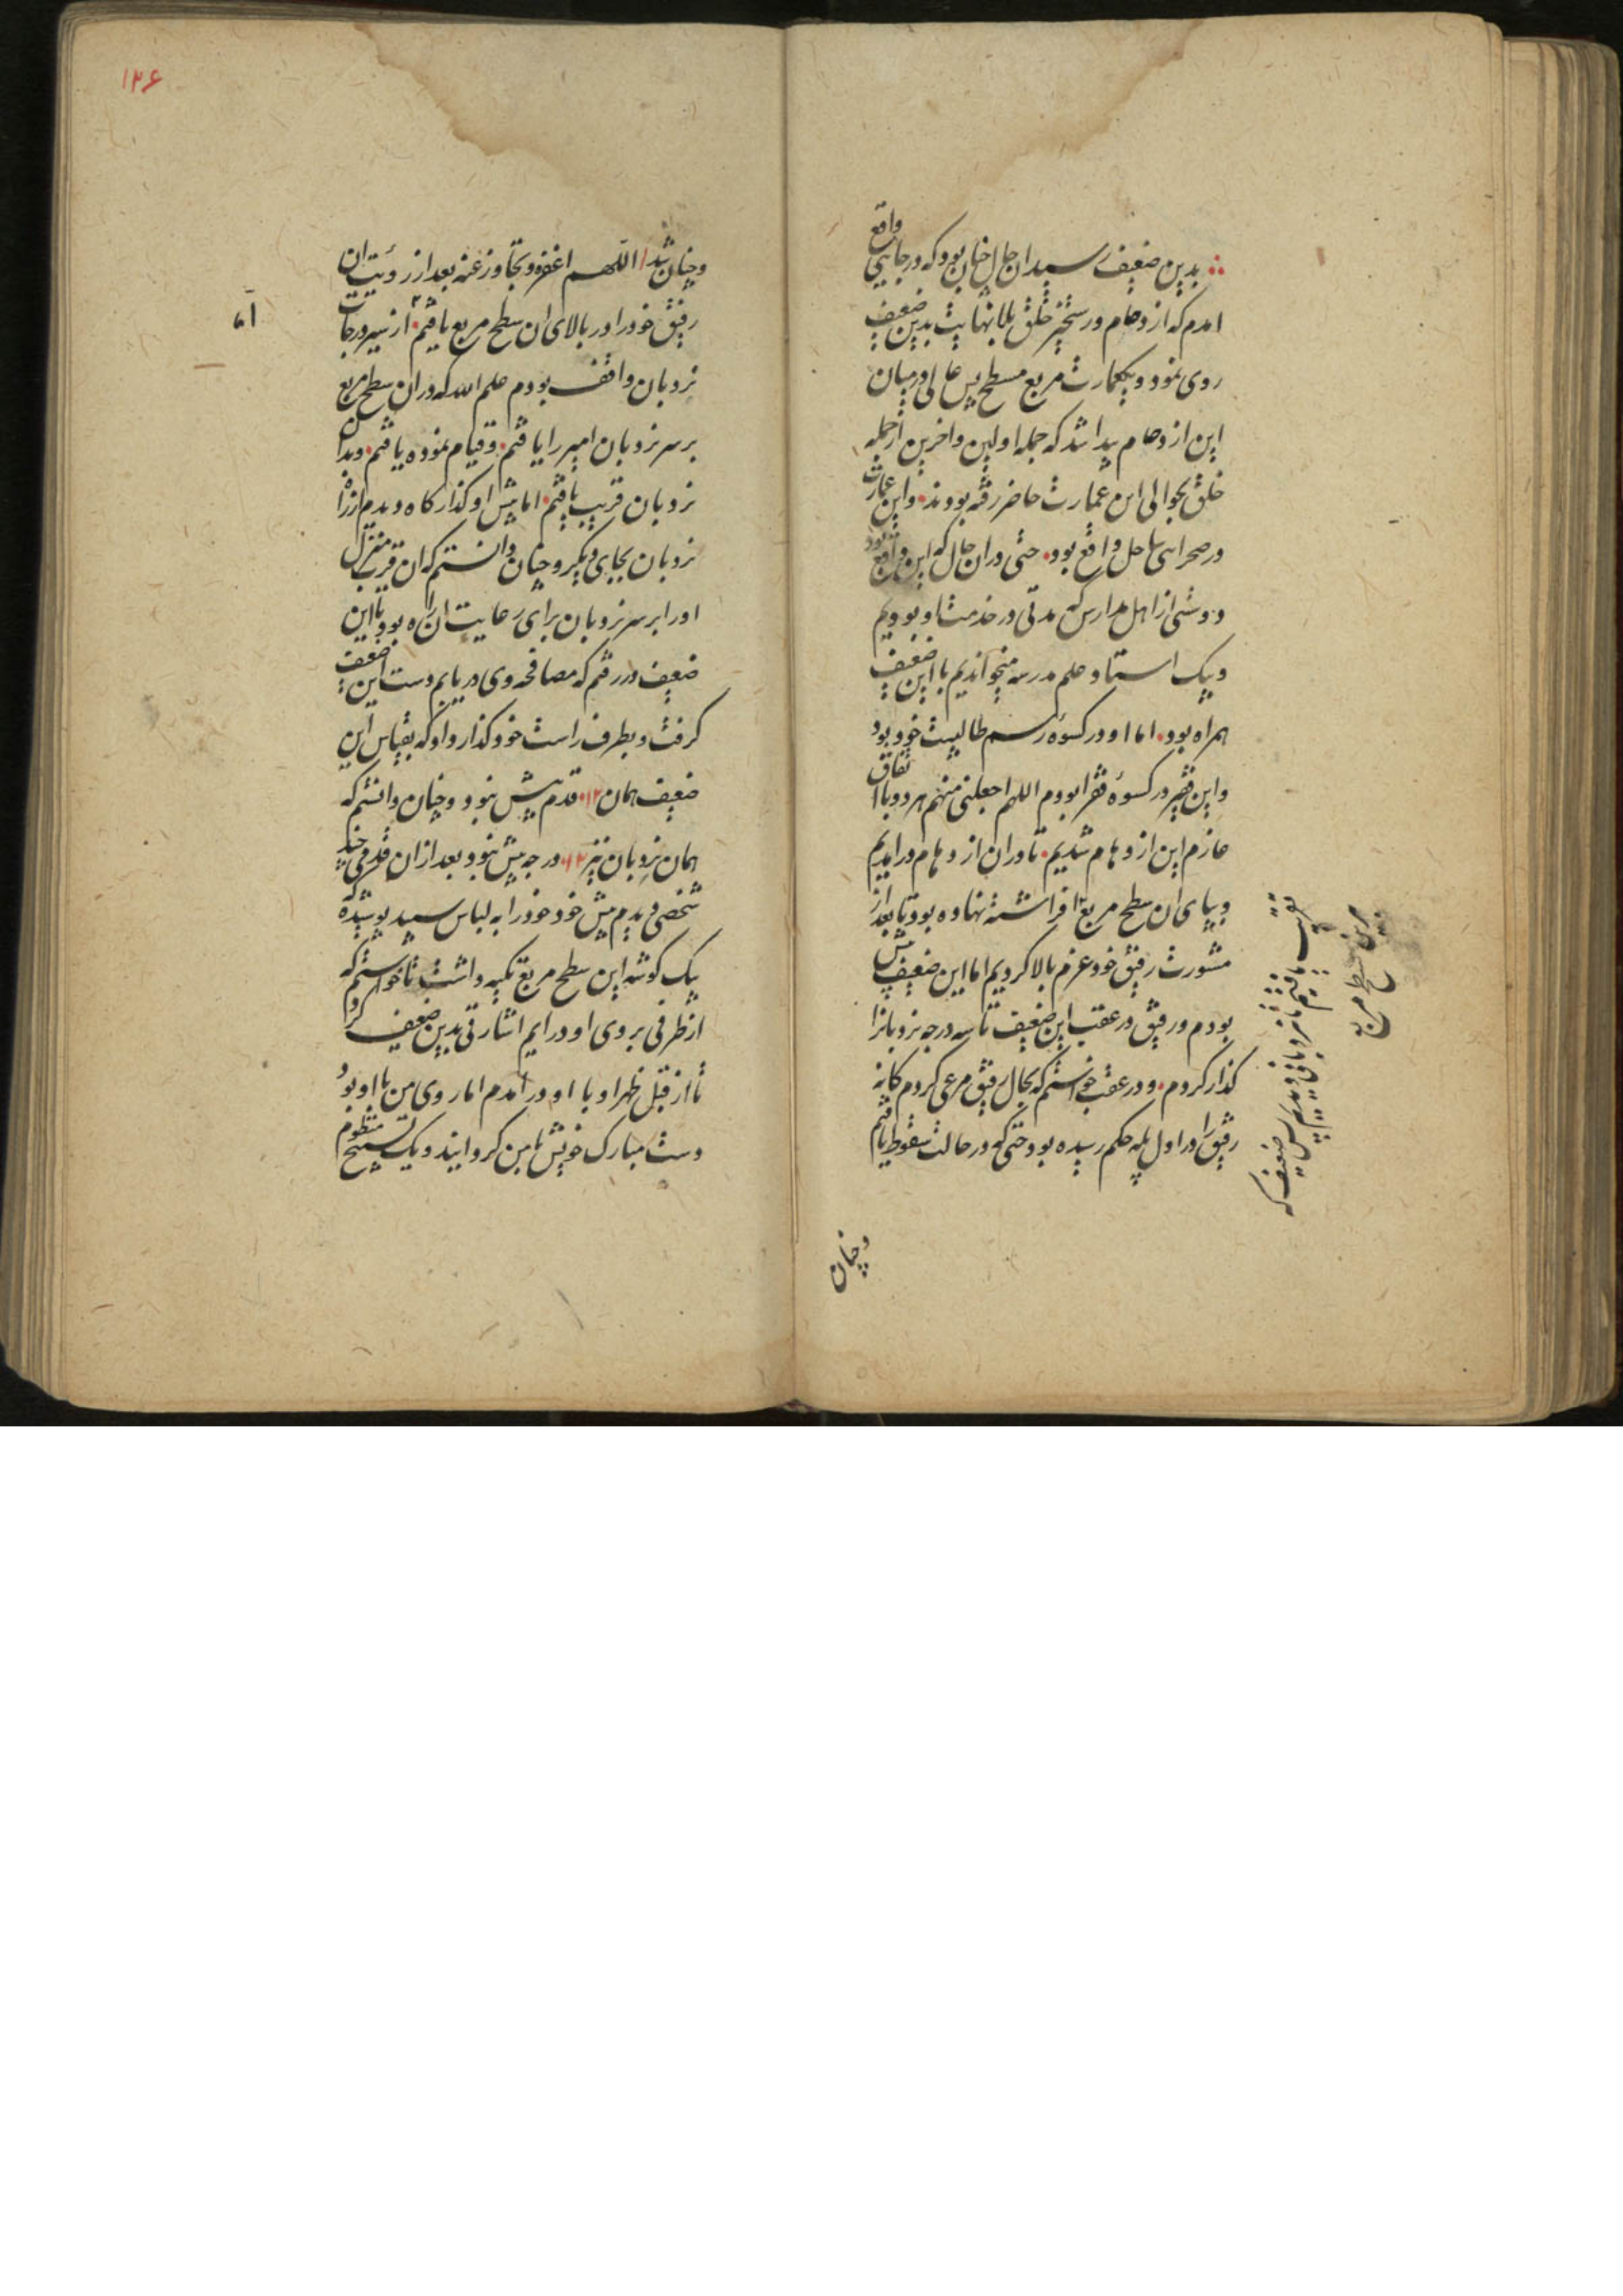 بدین ضعیف رسید ان حال چنان بود که در جایی واقع
امدم که ازدحام و رستخیز خلق بلانهایت بدین ضعیف
روی نمود و یکعمارت مربع مسطح بس عالی در میان
این ازدحام پیدا شد که جمله اولین و اخرین از جمله
خلق بحوالی این عمارت حاضر رفته بودند و این عمارت
در صحرای ساحل واقع بود حتی دران حال که این واقع بود
دوستی از اهل مدارس که مدتی در خدمت او بودیم
و بیک استاد علم مدرسه میخواندیم با این ضعیف
همراه بود اما او در کسوه رسم طالبیت خود بود
و این فقیر در کسوه فقرا بودم اللهم اجعلنی منهم هر دو با اتفاق
عازم این ازدحام شدیم تا دران ازدحام درامدیم
و بپای ان سطح مربع افراشته نهاده بود تا بعد از
مشورت رفیق خود عزم بالا کردیم اما این ضعیف پیش
بودم و رفیق در عقب این ضعیف تا سه درجه نردبانرا
گذار کردم و در عقب خواستم که بحال رفیق مرعی کردم کانه
رفیق را در اول پله حکم رسیده بود حتی که در حالت سقوط یافتم
یافتم نردبانی دیدم ضعیف که
سطح مربع
وچنان
۱۲۶
وچنان شد اللهم اغفره وتجاوز عنه بعد از رؤیت ان
رفیق خود را در بالای ان سطح مربع یافتم از سیر درجات
نردبان واقف بودم علم الله که در ان سطح مربع
بر سر نردبان امیر را یافتم و قیام نموده یافتم و بدان
نردبان قریب یافتم اما پیش او گذارگاه دیدم از راه
نردبان بجای دیگر و چنان دانستم که ان قرب منزل
او را بر سر نردبان برای رعایت ان راه بود تا این
ضعیف در رفتم که مصافحه وی دریابم دست این ضعیف
کرفت و بطرف راست خود گذار داد که بقیاس این
ضعیف همان ۱۲ قدم بیش نبود و چنان دانستم که
همان نردبان نیز ۱۲ درجه بیش نبود بعد از ان قدمی چند
شخصی دیدم پیش خود خود را به لباس سپید پوشیده که
بیک کوشه این سطح مربع تکیه داشت تا خواستم که
از طرفی بروی او درایم اشارتی بدین ضعیف کرد
تا از قبل ظهر او با او درامدم اما روی من با او بود
دست مبارک خویش بامن کردانید و یک تسبیح منظوم